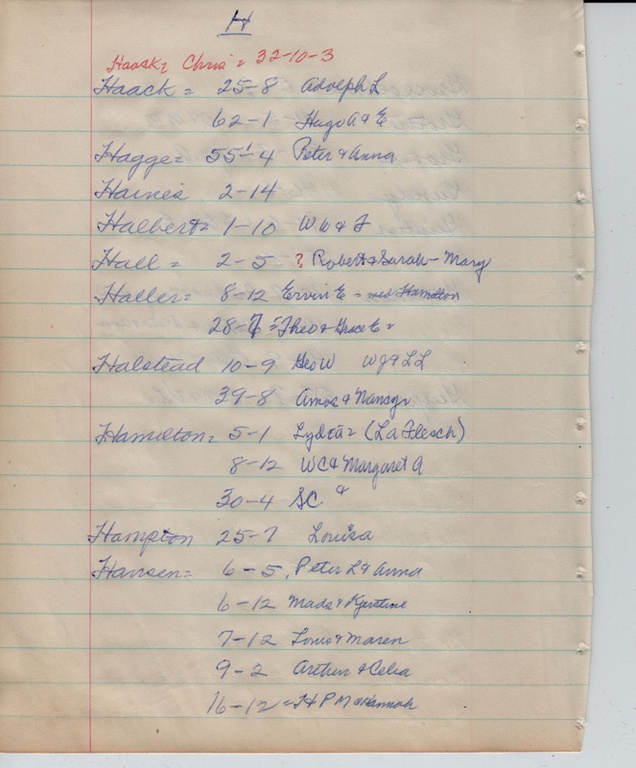 H
Haack, Chris = 32-10-3
Haack = 25-8 Adolph L
62-1 Hugo A & E
Hagge = 55-4 Peter & Anna
Haines 2-14
Halbert = 1-10 W W & F
Hall = 2-5 ? Robert & Sarah - Mary
Haller = 8-12 Ervin E = Hamilton
28-7 = Theo & Grace E =
Halstead 10-9 Geo W W J & L L
39-8 Amos & Nancy
Hamilton = 5-1 Lydia = (La Flesch)
8-12 W C & Margaret A
30-4 S C &
Hampton 25-7 Louisa
Hansen = 6-5 Peter L & Anna
6-12 Mads &
7-12 Louis & Maren
9-2 Arthur & Celia
16-12 = H P M & Hannah